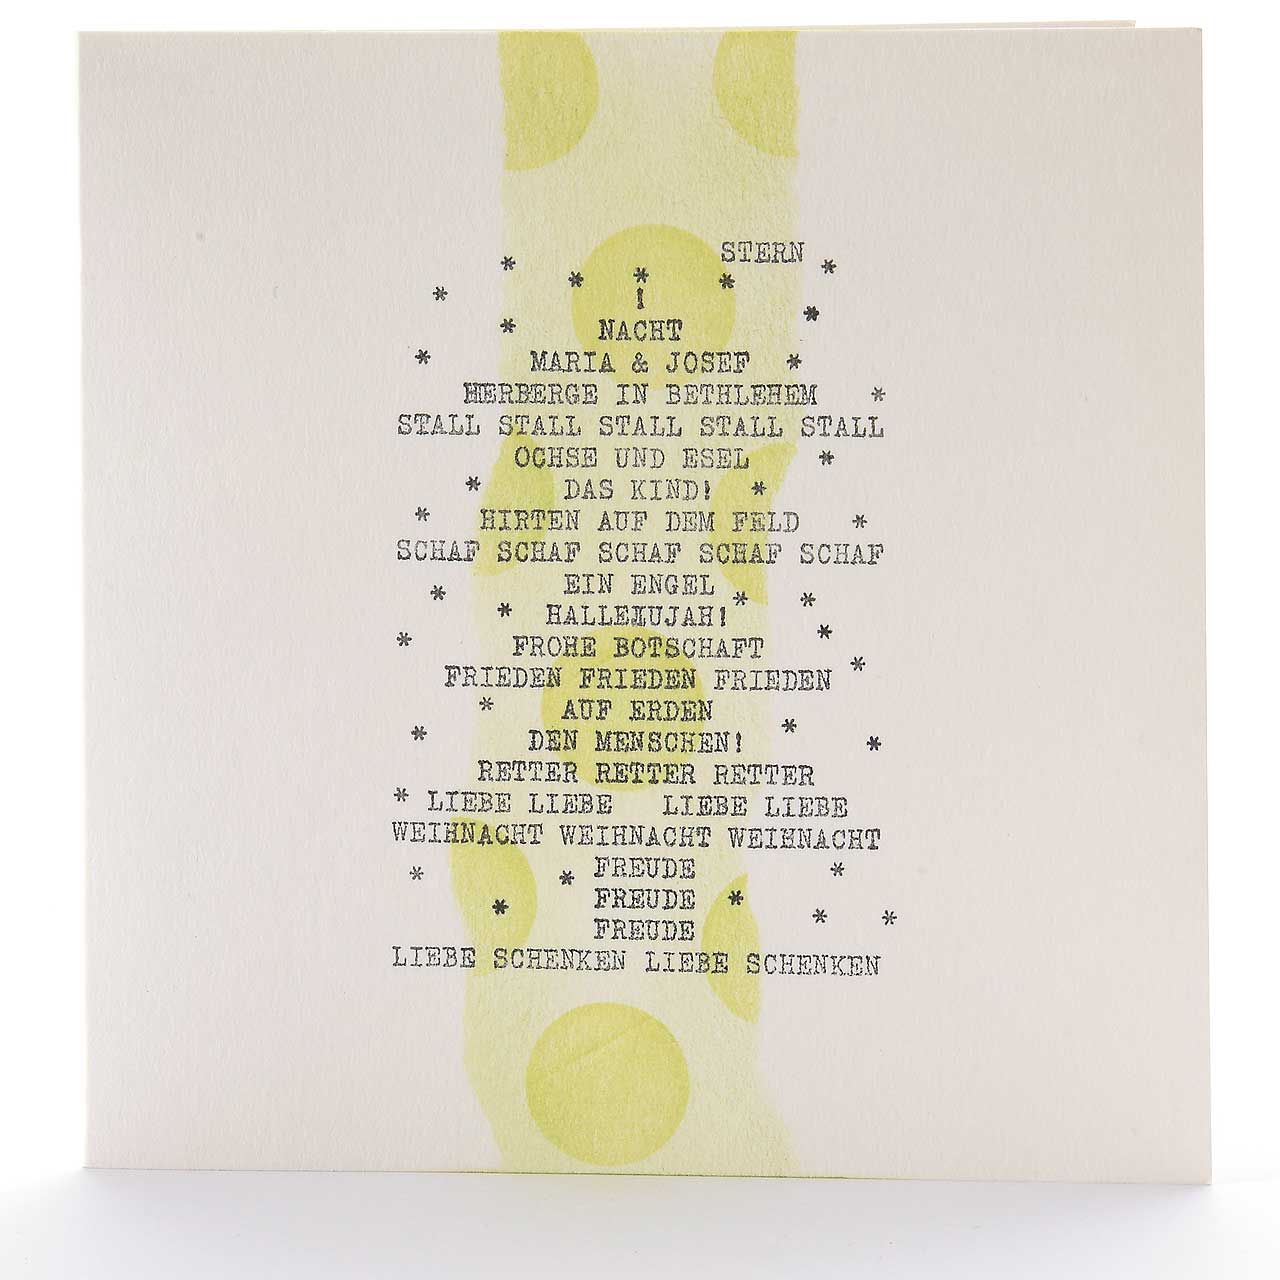 STERN
* * * * *
* !
* NACHT *
* MARIA & JOSEF *
HERBERGE IN BETHLEHEM *
STALL STALL STALL STALL STALL
OCHSE UND ESEL *
* DAS KIND! *
* HIRTEN AUF DEM FELD *
SCHAF SCHAF SCHAF SCHAF SCHAF
EIN ENGEL
* * HALLELUJAH! * *
* FROHE BOTSCHAFT *
FRIEDEN FRIEDEN FRIEDEN *
* AUF ERDEN *
* DEN MENSCHEN! *
RETTER RETTER RETTER
* LIEBE LIEBE LIEBE LIEBE
WEIHNACHT WEIHNACHT WEIHNACHT
* * FREUDE *
* FREUDE * * *
FREUDE
LIEBE SCHENKEN LIEBE SCHENKEN